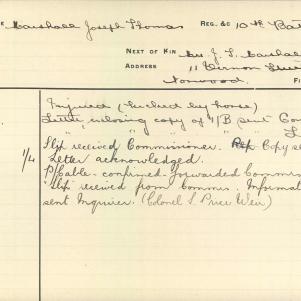 E Marshall Joseph Thomas REG. &C 10th Bat
NEXT OF KIN Mrs J. T. Marshall
ADDRESS 11 Vernon
Norwood. FI
Inquired (kicked by horse)
Letter enclosing copy of 1/B sent Co
" " " "
Slip received Commissioner. Rep Copy se
1/4 Letter acknowledged.
P/Cable - confirmed - forwarded Commis
"Slip" received from Commr. Informat
sent Inquirer. (Colonel S Price Weir)